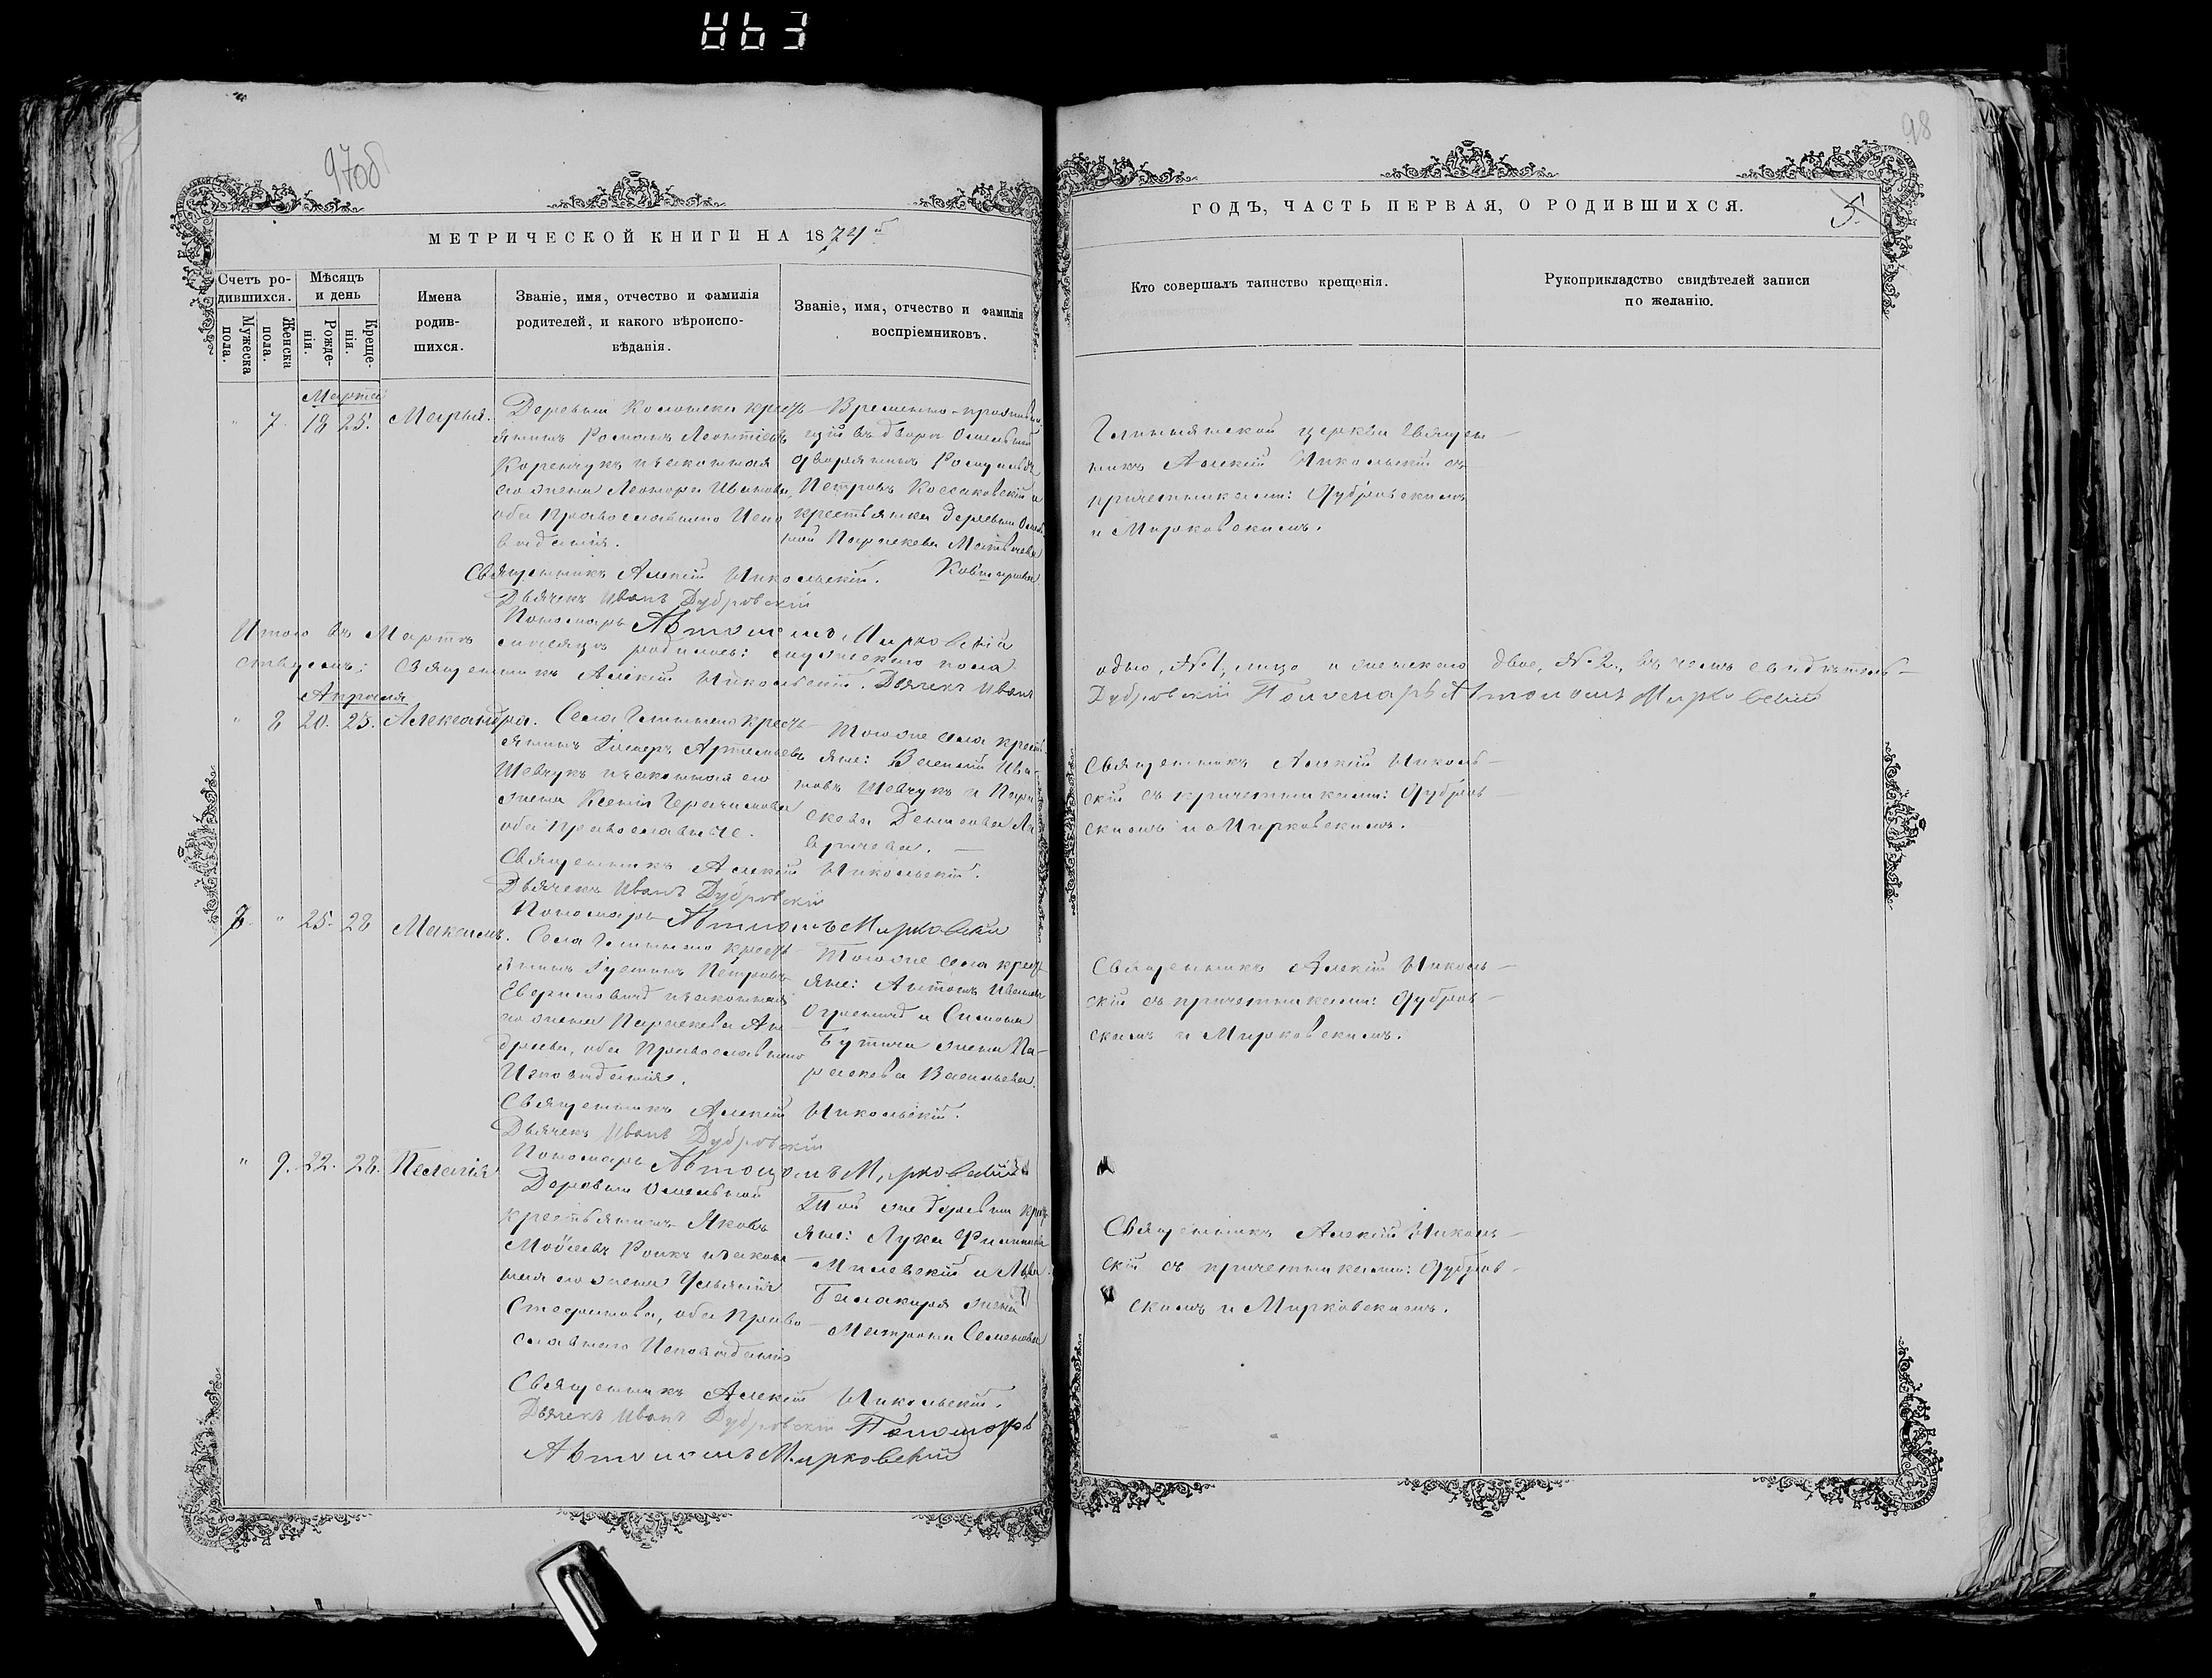 97об
98
МЕТРИЧЕСКОЙ КНИГИ НА 1874й
ГОДЪ, ЧАСТЬ ПЕРВАЯ, О РОДИВШИХСЯ.
5.
Счетъ ро-
дившихся.
Мужеска
пола.
Женска
пола.
Мѣсяцъ
и день
Рожде-
нія.
Креще-
нія.
Имена
родив-
шихся.
Званіе, имя, отчество и фамилія
родителей, и какого вѣроиспо-
вѣданія.
Званіе, имя, отчество и фамилія
воспріемниковъ.
Кто совершалъ таинство крещенія.
Рукоприкладство свидѣтелей записи
по желанію.
Марта
" 7. 18 25. Марья.
Деревни кресть-
янинъ Романъ Леонтіевъ
и законная
его жена Иванова,
оба Православнаго Испо
вѣданія.
Временно-проживаю
щій въ дворѣ
дворянинъ
Петровъ Коссаковскій и
крестьянка деревни
Параскева Матвѣева
церкви Священ-
никъ Алексій Никольскій съ
причетниками: Дубровскимъ
и Мирковскимъ.
Священникъ Алексій Никольскій.
Дьячекъ Иванъ Дубровскій
Пономарь Мирковскій
Итого въ Мартѣ мѣсяцѣ родилось: мужескаго пола
одно, №1, лицо и женскаго двое, №2, въ чемъ свидѣтель-
ствуемъ: Священникъ Алексій Никольскій. Дьячекъ Иванъ
Дубровскій Пономарь Мирковскій
Апрѣля
" 8 20. 23. Александра.
Села кресть-
янинъ Артемьевъ
Шевчукъ и законная его
жена Ксенія Герасимова
оба Православные.
Тогоже села кресть
яне: Василій Ива-
новъ Шевчукъ и Пара
скева
Священникъ Алексій Николь-
скій съ причетниками: Дубров-
скимъ и Мирковскимъ.
Священникъ Алексій Никольскій.
Дьячекъ Иванъ Дубровскій
Пономарь Мирковскій
" 25. 28 Максимъ.
Села кресть-
янинъ Петровъ
и законная
его жена Параскева Ан
дреева, оба Православнаго
Исповѣданія.
Тогоже села кресть
яне: Антонъ Ивановъ
и Симона
жена Па-
раскева Васильева.
Священникъ Алексій Николь-
скій съ причетниками: Дубров-
скимъ и Мирковскимъ.
Священникъ Алексій Никольскій.
Дьячекъ Иванъ Дубровскій
Пономарь Мирковскій
" 9. 22. 28. Пелагія
Деревни
крестьянинъ Яковъ
и закон-
ная его жена Ульянія
Стефанова, оба Право-
славнаго Исповѣданія
Той же деревни кресть
яне: Лука Филиповъ
Милевскій и
жена
Матрона Семенова
Священникъ Алексій Николь-
скій съ причетниками: Дубров-
скимъ и Мирковскимъ.
Священникъ Алексій Никольскій.
Дьячекъ Иванъ Дубровскій Пономарь
Мирковскій